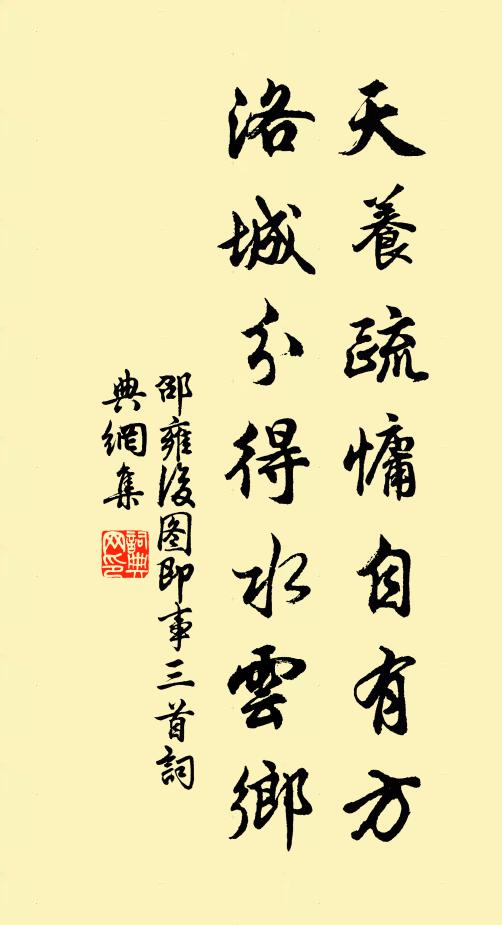 天養疏慵自有方
洛城分得水雲鄉
邵雍後图即事三首詞
典網集
詞典
网印